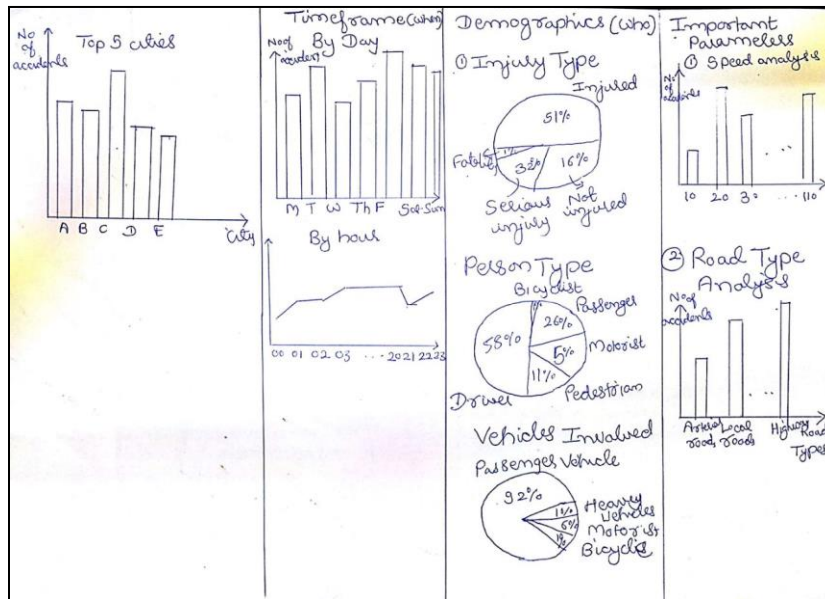 No
of
accidents
Top 5 cities
A B C D E
City
Timeframe (when)
By Day
No of
accident
M T W Th F Sat Sun
By hour
00 01 02 03 ... 20 21 22 23
Demographics (who)
① Injury Type
Injured
51%
1%
Fatal
32%
16%
Serious
injury
Not
injured
Person Type
Bicyclist
Passenger
26%
58%
5%
Motorist
11%
Driver
Pedestrian
Vehicles Involved
Passenger Vehicle
92%
1%
Heavy
Vehicles
6%
Motorist
1%
Important
Parameters
① Speed analysis
No
of
accidents
10 20 30 ... 110
② Road Type
Analysis
No of
accidents
Arterial
road,
Local
roads
Highway
Road
Types